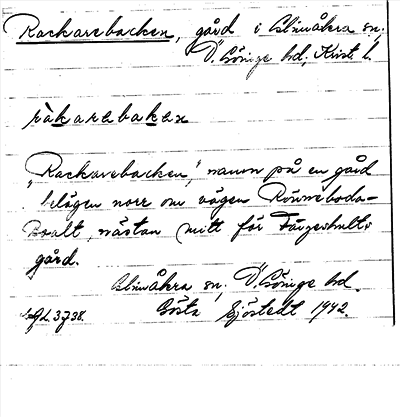 Rackarebacken, gård i Glimåkra sn,
Ö. Göinge hd, Krist. l.
ràkarebaken
"Rackarebacken," namn på en gård
belägen norr om vägen Rönneboda–
Boalt, nästan mitt för Färgeshults
gård.
Glimåkra sn, Ö. Göinge hd.
Gösta Sjöstedt 1942.